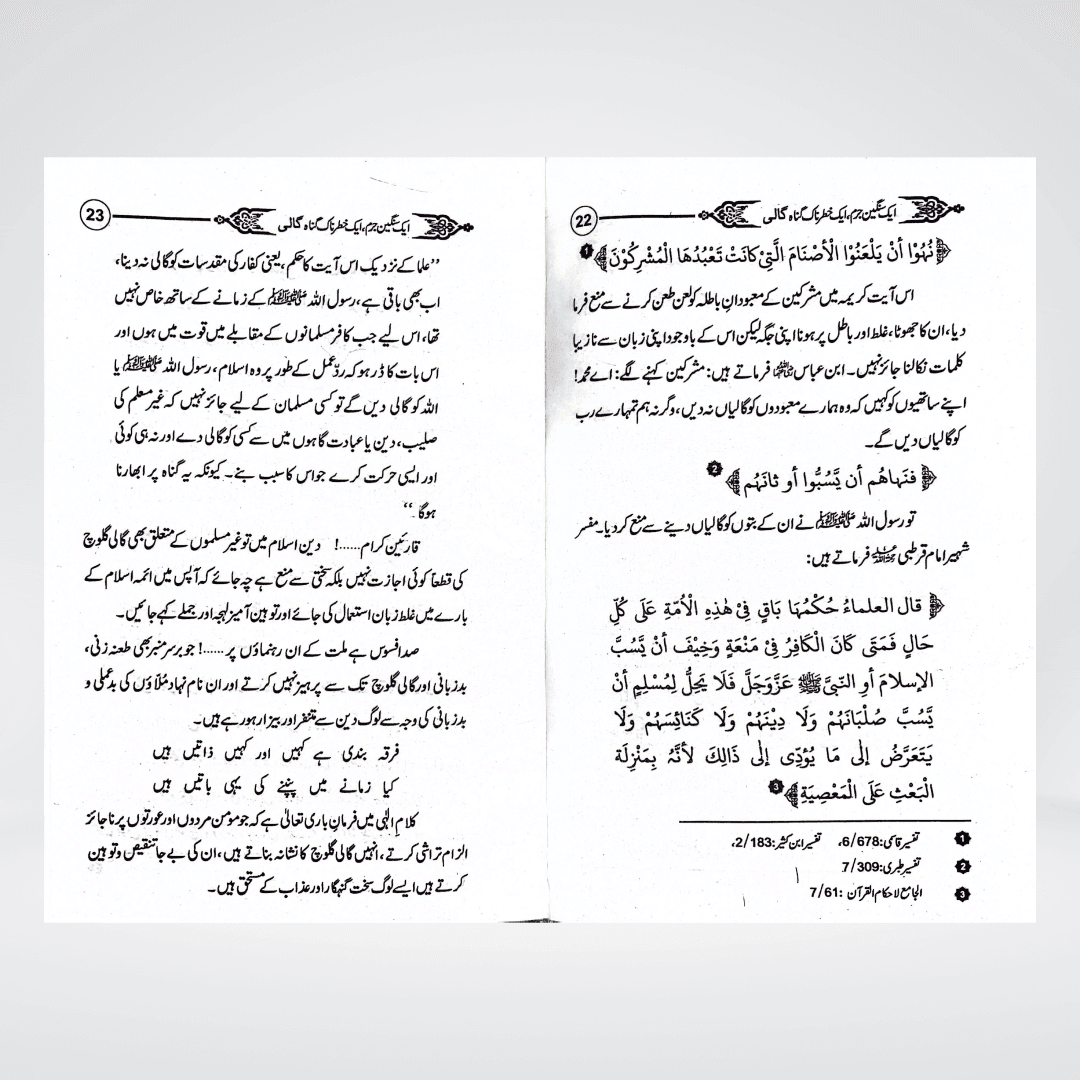 ایک سنگین جرم، ایک خطرناک گناہ گالی
22
﴿نُهُوْا أَنْ يَلْعَنُوْا الْأَصْنَامَ الَّتِیْ کَانَتْ تَعْبُدُهَا الْمُشْرِکُوْنَ﴾ 1
اس آیت کریمہ میں مشرکین کے معبودانِ باطلہ کو لعن طعن کرنے سے منع فرما
دیا، ان کا جھوٹا، غلط اور باطل پر ہونا اپنی جگہ لیکن اس کے باوجود اپنی زبان سے نازیبا
کلمات نکالنا جائز نہیں۔ ابن عباس رضی اللہ عنہما فرماتے ہیں: مشرکین کہنے لگے: اے محمد!
اپنے ساتھیوں کو کہیں کہ وہ ہمارے معبودوں کو گالیاں نہ دیں، وگرنہ ہم تمہارے رب
کو گالیاں دیں گے۔
﴿فنهاهُم أن يَّسُبُّوا أو ثانَهُم﴾ 2
تو رسول اللہ ﷺ نے ان کے بتوں کو گالیاں دینے سے منع کر دیا۔ مفسر
شہیر امام قرطبی رحمہ اللہ فرماتے ہیں:
﴿قال العلماءُ حُکْمُهَا بَاقٍ فِیْ هٰذِهِ الْأُمَّةِ عَلَی کُلِّ
حَالٍ فَمَتَی کَانَ الْکَافِرُ فِیْ مَنْعَةٍ وَخِیْفَ أَنْ يَّسُبَّ
الإسلامَ أوِ النّبیَّ ﷺ عَزَّوَجَلَّ فَلَا یَحِلُّ لِمُسْلِمٍ أَنْ
يَّسُبَّ صُلْبَانَهُمْ وَلَا دِیْنَهُمْ وَلَا کَنَائِسَهُمْ وَلَا
یَتَعَرَّضُ إِلٰی مَا یُؤَدِّی إِلٰی ذَالِكَ لأَنَّهُ بِمَنْزِلَة
الْبَعْثِ عَلَی الْمَعْصِیَةِ﴾ 3
1 تفسیر قاسمی: 6/678، تفسیر ابن کثیر: 2/183،
2 تفسیر طبری: 7/309
3 الجامع لاحکام القرآن: 7/61
ایک سنگین جرم، ایک خطرناک گناہ گالی
23
”علما کے نزدیک اس آیت کا حکم، یعنی کفار کی مقدسات کو گالی نہ دینا،
اب بھی باقی ہے، رسول اللہ ﷺ کے زمانے کے ساتھ خاص نہیں
تھا، اس لیے جب کافر مسلمانوں کے مقابلے میں قوت میں ہوں اور
اس بات کا ڈر ہو کہ ردِّ عمل کے طور پر وہ اسلام، رسول اللہ ﷺ یا
اللہ کو گالی دیں گے تو کسی مسلمان کے لیے جائز نہیں کہ غیر مسلم کی
صلیب، دین یا عبادت گاہوں میں سے کسی کو گالی دے اور نہ ہی کوئی
اور ایسی حرکت کرے جو اس کا سبب بنے۔ کیونکہ یہ گناہ پر ابھارنا
ہوگا۔“
قارئین کرام......! دین اسلام میں تو غیر مسلموں کے متعلق بھی گالی گلوچ
کی قطعاً کوئی اجازت نہیں بلکہ سختی سے منع ہے چہ جائے کہ آپس میں ائمہ اسلام کے
بارے میں غلط زبان استعمال کی جائے اور توہین آمیز لہجہ اور جملے کہے جائیں۔
صد افسوس ہے ملت کے ان رہنماؤں پر......! جو برسر منبر بھی طعنہ زنی،
بدزبانی اور گالی گلوچ تک سے پرہیز نہیں کرتے اور ان نام نہاد مُلّاؤں کی بدعملی و
بدزبانی کی وجہ سے لوگ دین سے متنفر اور بیزار ہو رہے ہیں۔
فرقہ بندی ہے کہیں اور کہیں ذاتیں ہیں
کیا زمانے میں پنپنے کی یہی باتیں ہیں
کلامِ الٰہی میں فرمانِ باری تعالیٰ ہے کہ جو مومن مردوں اور عورتوں پر ناجائز
الزام تراشی کرتے، انہیں گالی گلوچ کا نشانہ بناتے ہیں، ان کی بے جا تنقیص و توہین
کرتے ہیں ایسے لوگ سخت گنہگار اور عذاب کے مستحق ہیں۔